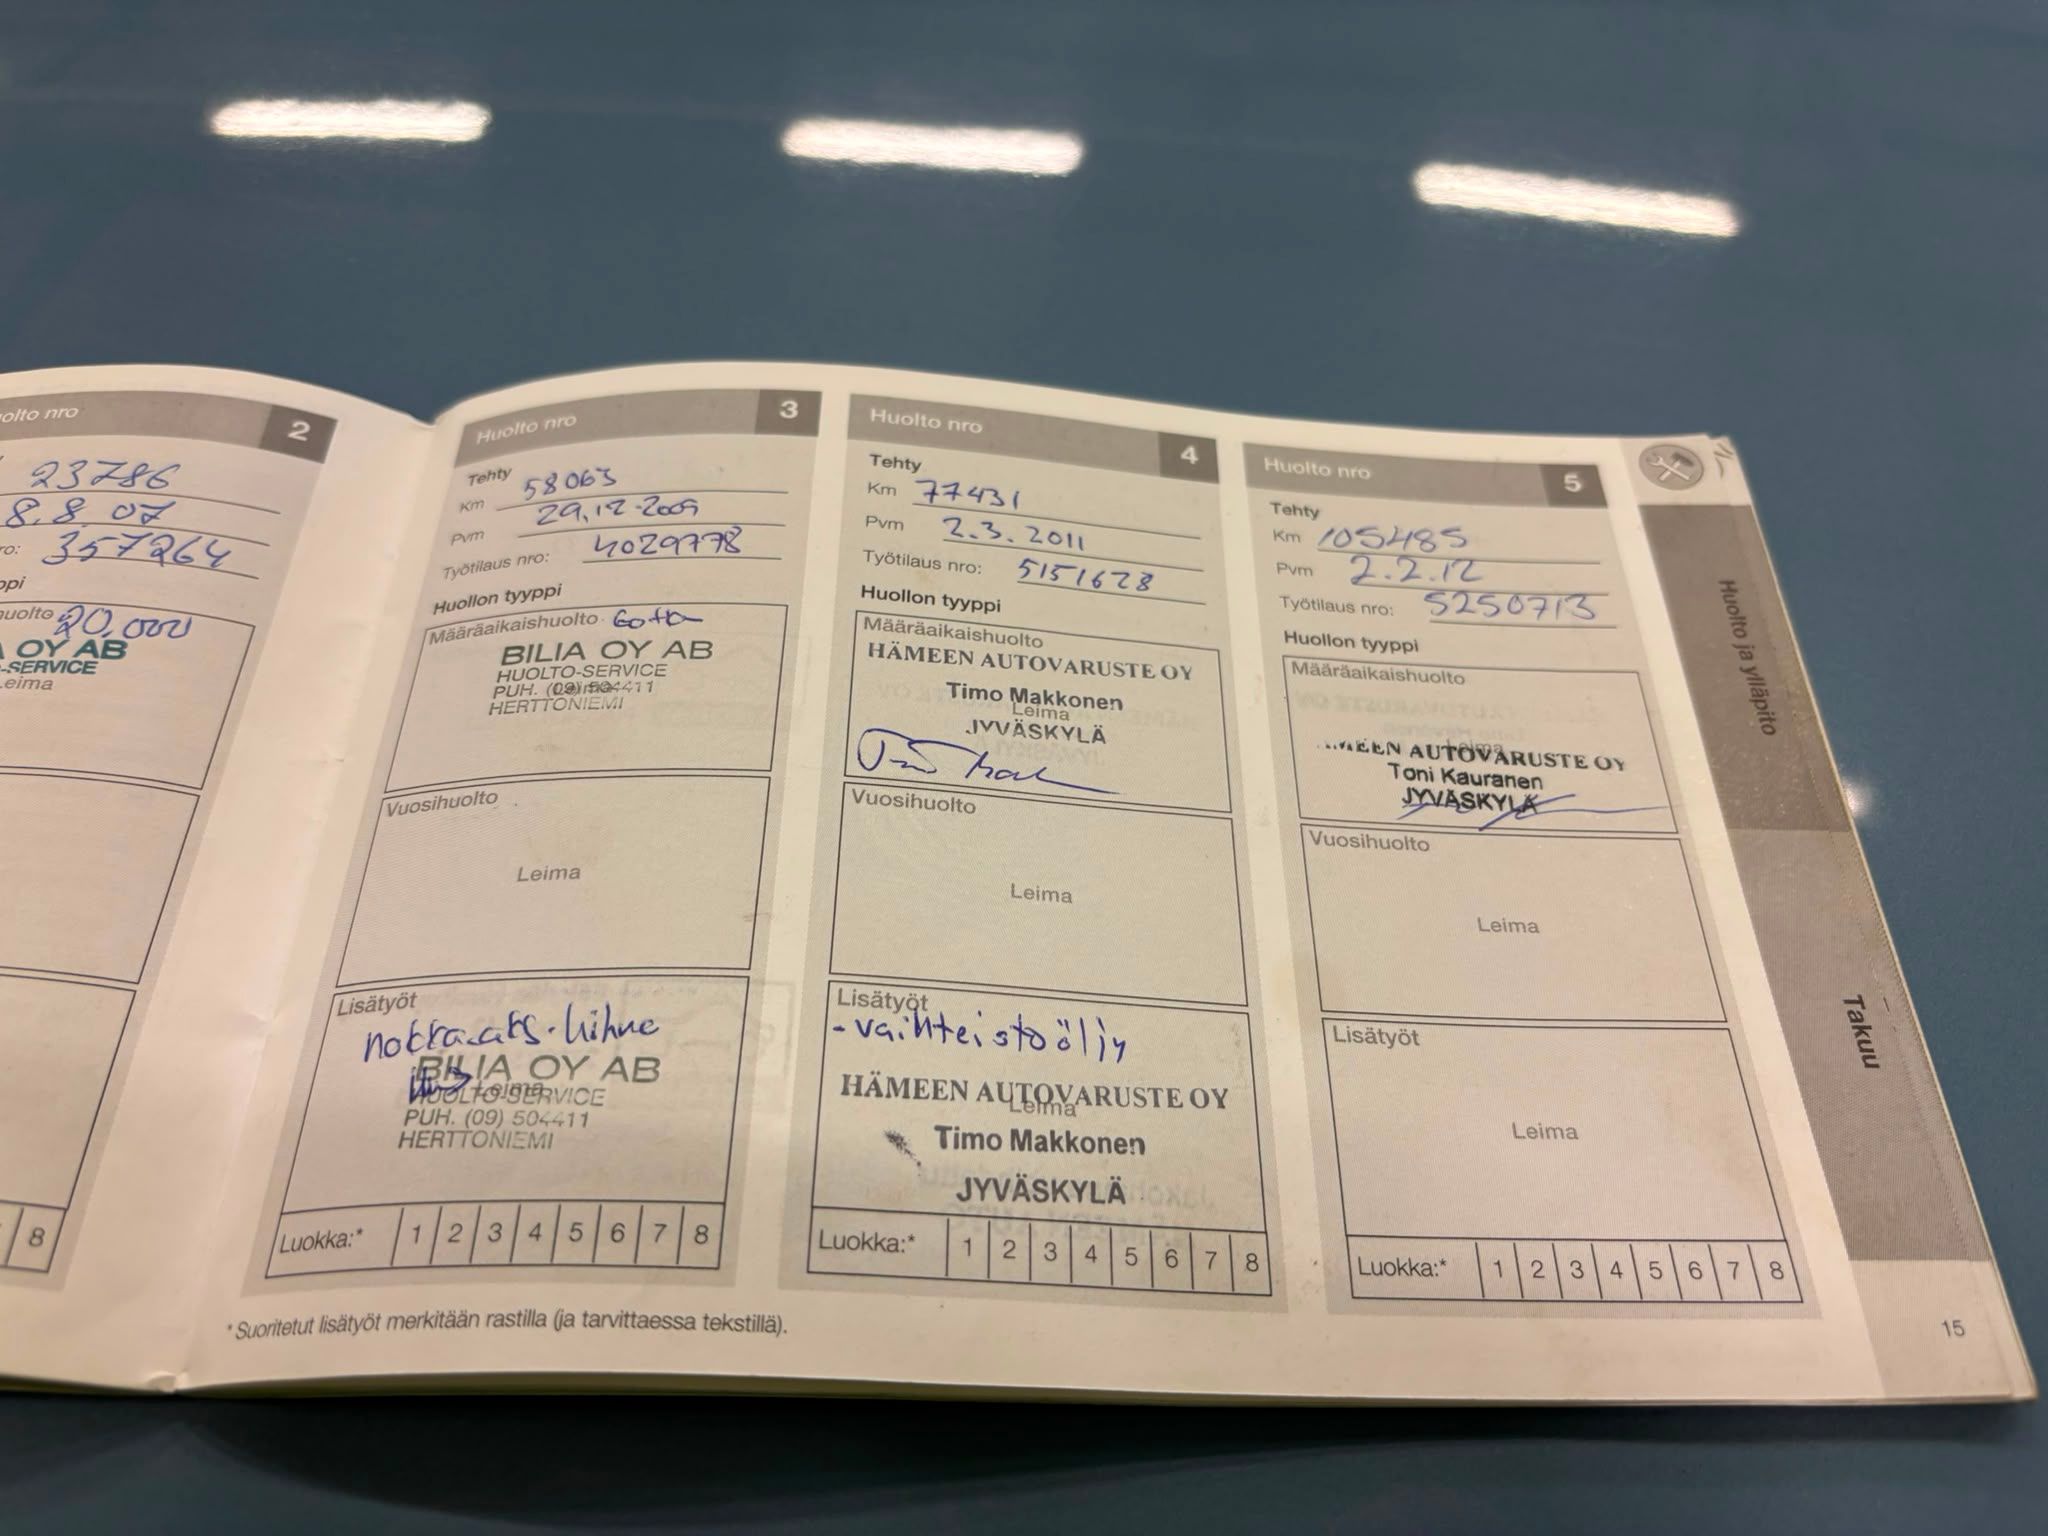 olto nro 2
23786
8.8.07
ro: 357264
ppi
huolto 20.000
OY AB
-SERVICE
Leima
8
Huolto nro 3
Tehty
Km 58063
Pvm 29.12.2009
Työtilaus nro: 4029778
Huollon tyyppi
Määräaikaishuolto
BILIA OY AB
HUOLTO-SERVICE
PUH. (09) 504411
Leima
HERTTONIEMI
Vuosihuolto
Leima
Lisätyöt
nokka-aks. hihna
BILIA OY AB
Leima
HUOLTO-SERVICE
PUH. (09) 504411
HERTTONIEMI
Luokka:* 1 2 3 4 5 6 7 8
Huolto nro 4
Tehty
Km 77431
Pvm 2.3.2011
Työtilaus nro: 5151628
Huollon tyyppi
Määräaikaishuolto
HÄMEEN AUTOVARUSTE OY
Timo Makkonen
Leima
JYVÄSKYLÄ
Vuosihuolto
Leima
Lisätyöt
- vaihteistoöljy
HÄMEEN AUTOVARUSTE OY
Leima
Timo Makkonen
JYVÄSKYLÄ
Luokka:* 1 2 3 4 5 6 7 8
Huolto nro 5
Tehty
Km 105485
Pvm 2.2.12
Työtilaus nro: 5250713
Huollon tyyppi
Määräaikaishuolto
Leima
HÄMEEN AUTOVARUSTE OY
Toni Kauranen
JYVÄSKYLÄ
Vuosihuolto
Leima
Lisätyöt
Leima
Luokka:* 1 2 3 4 5 6 7 8
* Suoritetut lisätyöt merkitään rastilla (ja tarvittaessa tekstillä).
Huolto ja ylläpito
Takuu
15